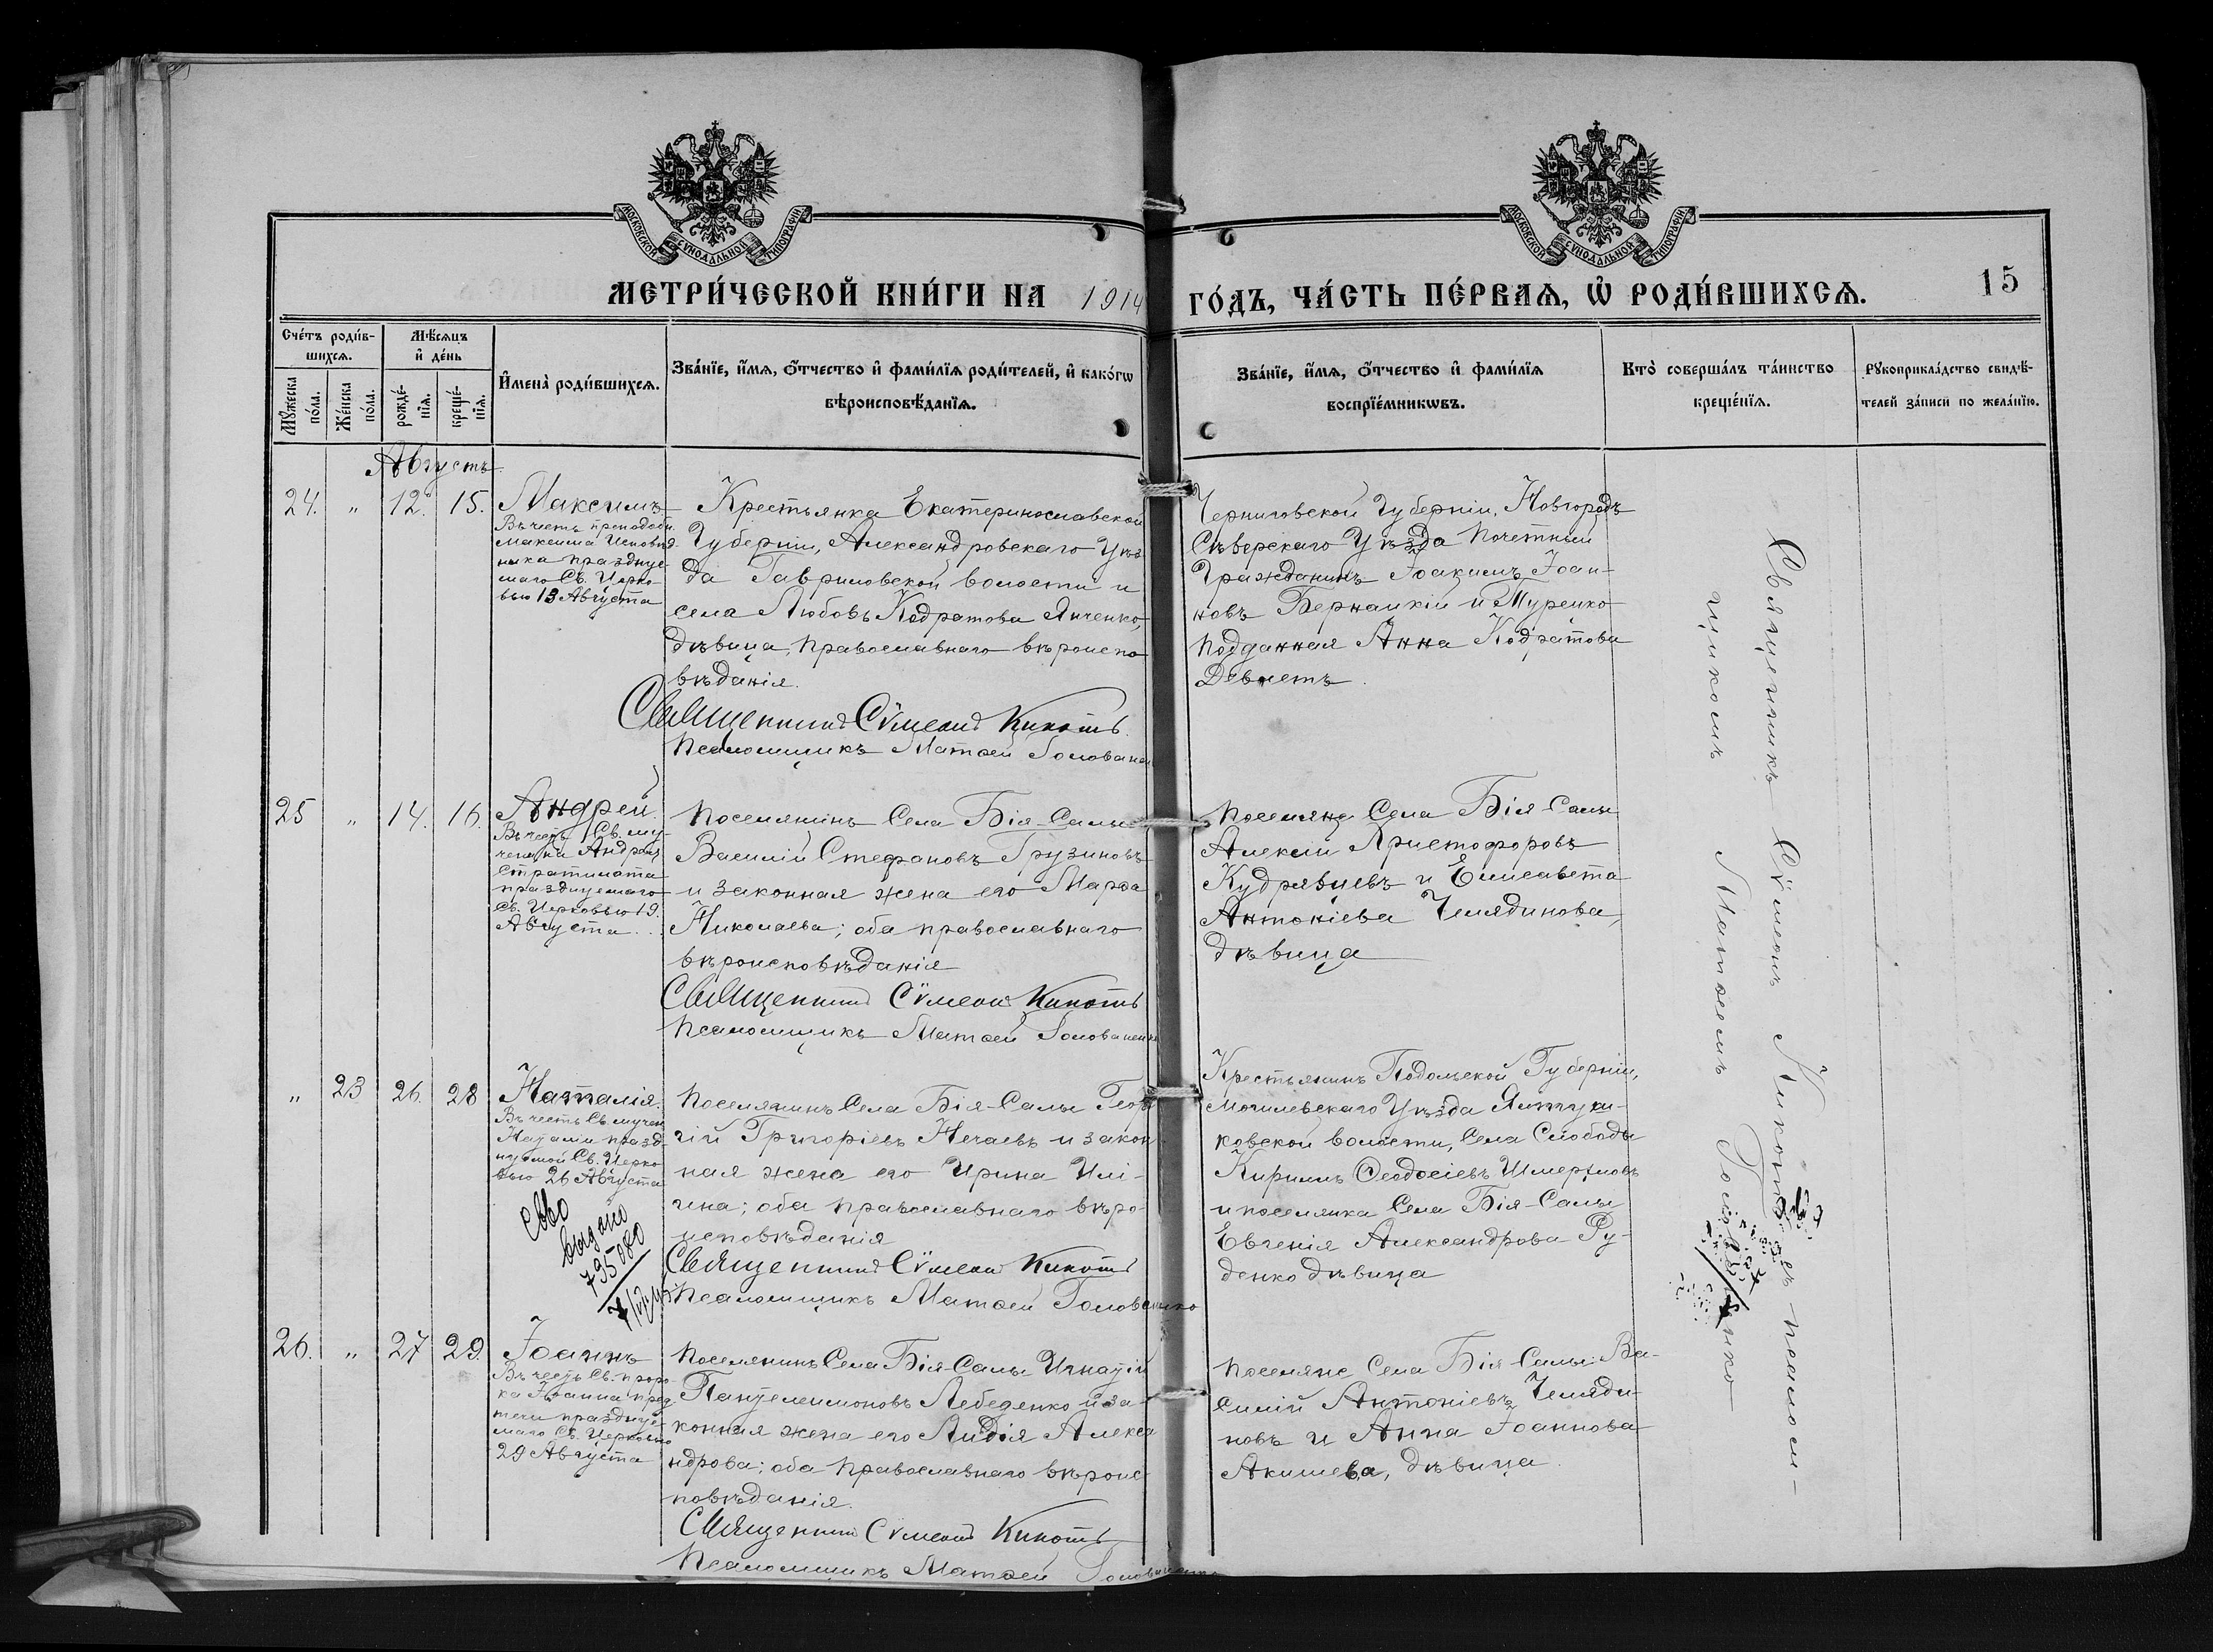 МОСКОВСКОЙ СѴНОДАЛЬНОЙ ТИПОГРАФІИ
МОСКОВСКОЙ СѴНОДАЛЬНОЙ ТИПОГРАФІИ
МЕТРИ́ЧЕСКОЙ КНИ́ГИ НА 1914
ГО́ДЪ, ЧА́СТЬ ПЕ́РВАѦ, Ѽ РОДИ́ВШИХСѦ.
15
Сче́тъ роди́в-
шихсѧ.
Мѣсѧцъ
и҆ де́нь
Мꙋ́жеска
по́ла.
Же́нска
по́ла.
рожде́-
нїѧ.
креще́-
нїѧ.
И҆мена̀ роди́вшихсѧ.
Зва́нїе, и҆́мѧ, ѻ҆́тчество и҆ фами́лїѧ роди́телей, и҆ како́гѡ
вѣроисповѣ́данїѧ.
Зва́нїе, и҆́мѧ, ѻ҆́тчество и҆ фами́лїѧ
воспрїе́мникѡвъ.
Кто̀ соверша́лъ та́инство
креще́нїѧ.
Рꙋкоприкла́дство свидѣ́-
телей за́писи по жела́нїю.
Августъ
24. " 12. 15. Максимъ
Въ честь преподобн.
Максима Исповѣд.
ника празднуе
маго Св. Церко
вью 13 Августа
Крестьянка Екатеринославской
Губерніи, Александровскаго Уѣз
да Гавриловской волости и
села Любовь Кодратова Янченко,
дѣвица, православнаго вѣроиспо
вѣданія.
Священникъ Сѵмеонъ Кикоть.
Псаломщикъ Матѳей Голованен
Черниговской Губерніи, Новгородъ
Сѣверскаго Уѣзда Почетный
Гражданинъ Іоакимъ Іоан-
новъ Бернацкій и Турецко
подданная Анна Кодратова
Девлетъ.
25 " 14. 16. Андрей.
Въ честь Св. му-
ченика Андрея
Стратилата
празднуемаго
Св. Церковью 19.
Августа.
Поселянинъ Села Бія-Салы
Василій Стефановъ Грузиновъ
и законная жена его Марѳа
Николаева; оба православнаго
вѣроисповѣданія
Священникъ Сѵмеонъ Кикоть
Псаломщикъ Матѳей Голованенк
Поселяне Села Бія-Салы
Алексій Христофоровъ
Кудрявцевъ и Елисавета
Антоніева Челядинова,
дѣвица
" 23 26. 28 Наталія.
Въ честь Св. мучен
Наталіи празд-
нуемой Св. Церко
вью 26 Августа
Св-во
выдано
795080
Поселянинъ Села Бія-Салы Геор
гій Григоріевъ Нечаевъ и закон
ная жена его Ирина Илі-
ина; оба православнаго вѣро-
исповѣданія
Священникъ Сѵмеонъ Кикоть
Псаломщикъ Матѳей Голованенко
Крестьянинъ Подольской Губерніи,
Могилевскаго Уѣзда Ялтуш-
ковской волости, Села Слободы
Кириллъ Ѳеодосіевъ
и поселянка Села Бія-Салы
Евгенія Александрова Ру-
денко дѣвица
26. " 27 29. Іоаннъ
Въ честь Св. проро-
ка Іоанна пред
течи празднуе-
маго Св. Церковью
29 Августа
Поселянинъ Села Бія-Салы Игнатій
Пантелеимоновъ Лебеденко и за-
конная жена его Лидія Алекса
ндрова; оба православнаго вѣроис-
повѣданія.
Священникъ Сѵмеонъ Кикоть
Псаломщикъ Матѳей Голованенко
Поселяне Села Бія-Салы: Ва-
силій Антоніевъ Челяди-
новъ и Анна Іоаннова
Акишева, дѣвица.
Священникъ Сѵмеонъ Кикоть съ псалом-
щикомъ Матѳеемъ